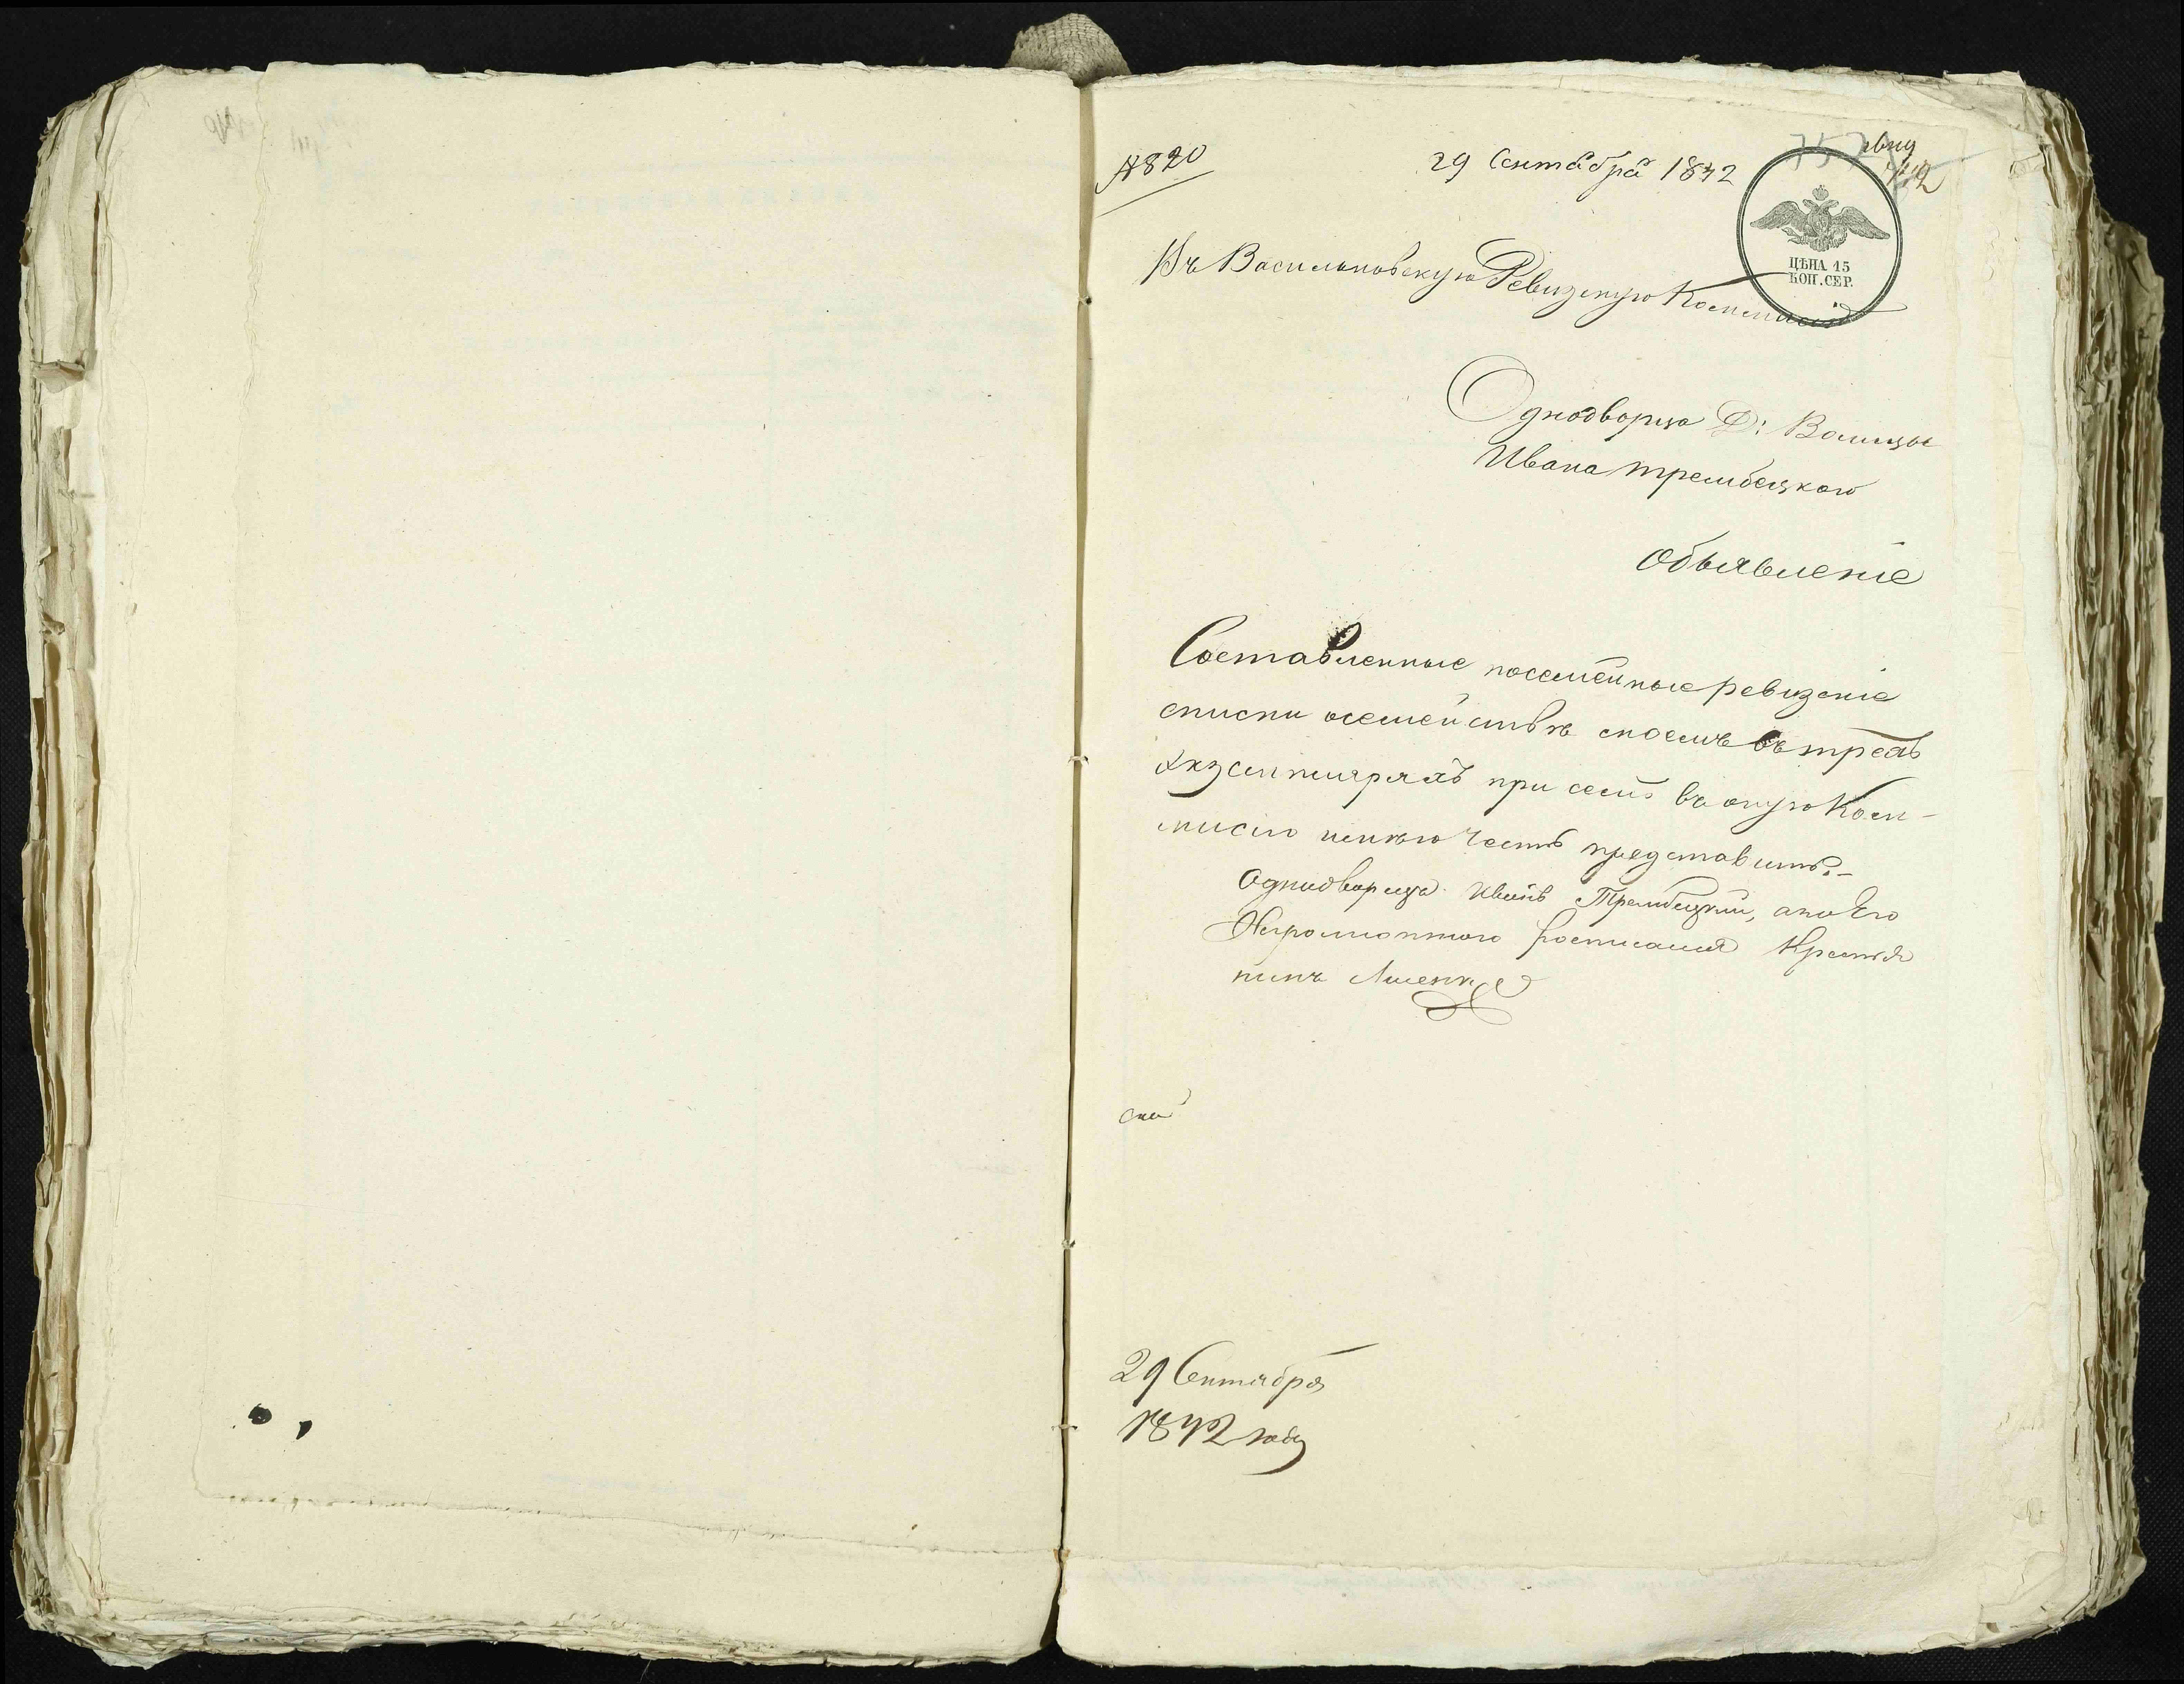 № 820
29 Сентября 1842
757
ЦѢНА 15
КОП. СЕР.
Въ Васильковскую Ревизскую Коммисію
Однодворца Д: Волицы
Ивана Трембецкого
Объявленіе
Составленные посемейные ревизскіе
списки о семействѣ моемъ въ трехъ
экземплярахъ при семъ въ оную Ком-
мисію имѣю честь представить.–
Однодворецъ Иванъ Трембецкій, а по Его
Неграмотного росписался Крестья
нинъ
29 Сентября
1842 года